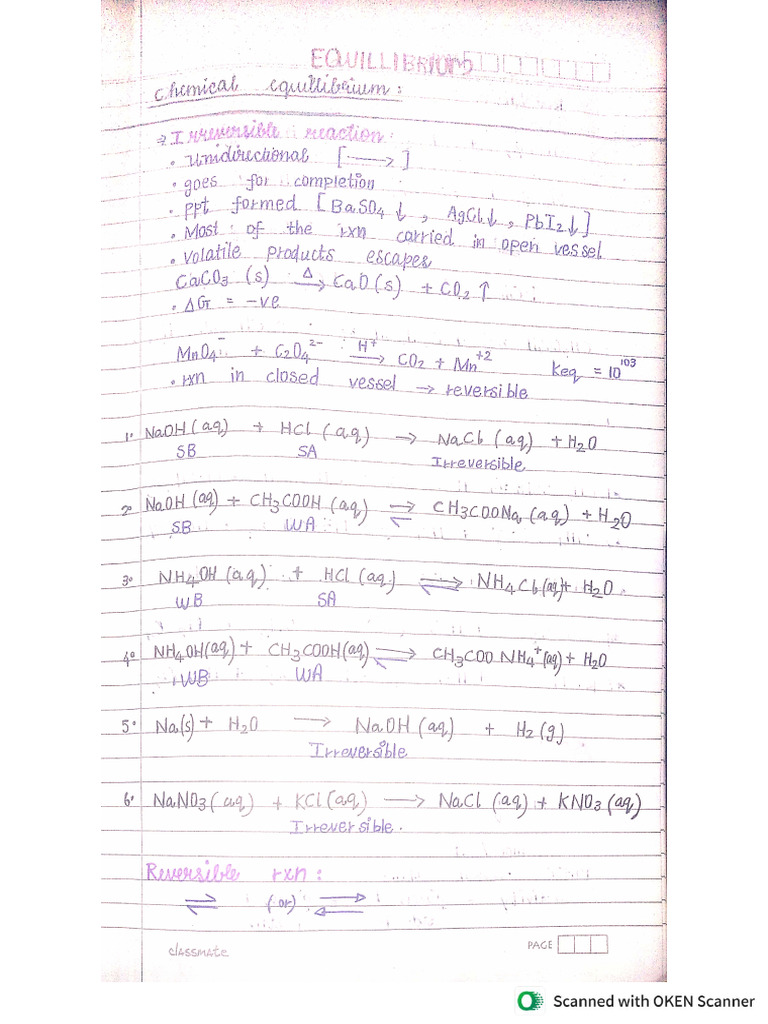 EQUILLIBRIUM
Chemical equillibrium:
⇒ Irreversible reaction:
• Unidirectional [⟶]
• goes for completion
• ppt formed [BaSO4↓, AgCl↓, PbI2↓]
• Most of the rxn carried in open vessel
• Volatile products escapes
CaCO3 (s) —Δ→ CaO(s) + CO2↑
• ΔG = -ve
MnO4⁻ + C2O4²⁻ —H⁺→ CO2 + Mn⁺² Keq = 10¹⁰³
• rxn in closed vessel → reversible
1• NaOH (aq) + HCl (aq) → NaCl (aq) + H2O
SB SA Irreversible
2• NaOH (aq) + CH3COOH (aq) ⇌ CH3COONa (aq) + H2O
SB WA
3• NH4OH (aq) + HCl (aq) ⇌ NH4Cl (aq) + H2O
WB SA
4• NH4OH(aq) + CH3COOH(aq) ⇌ CH3COO NH4⁺(aq) + H2O
WB WA
5• Na(s) + H2O → NaOH (aq) + H2(g)
Irreversible
6• NaNO3 (aq) + KCl (aq) → NaCl (aq) + KNO3 (aq)
Irreversible.
Reversible rxn:
⇌ (or) ⇌
classmate PAGE
Scanned with OKEN Scanner